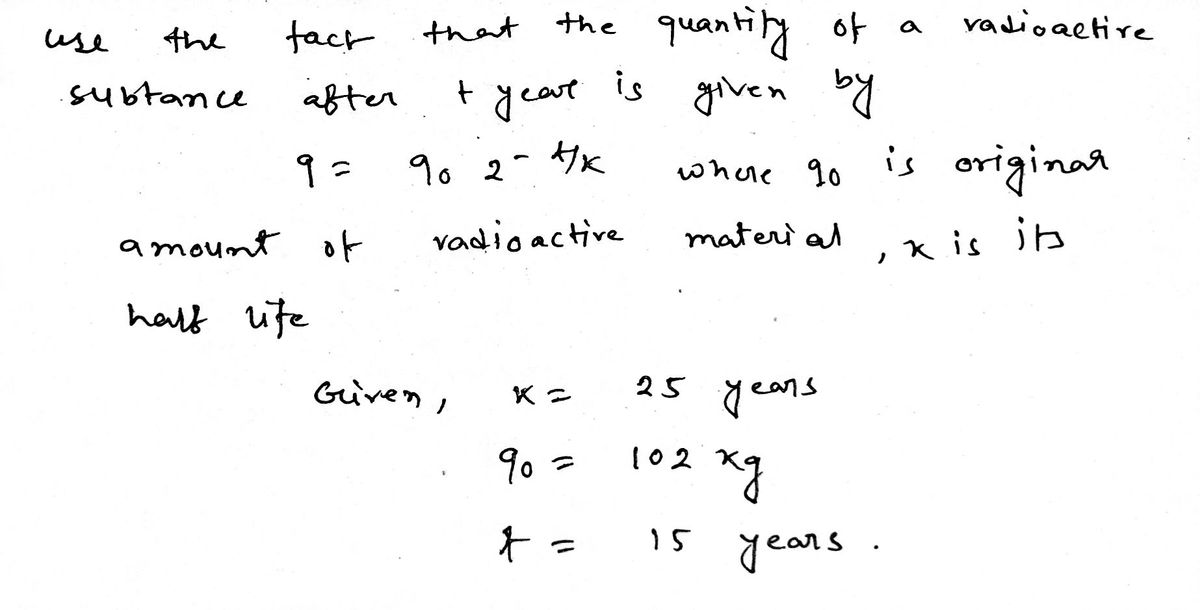 use the fact that the quantity of a radioactive
substance after t years is given by
q = q₀ 2^(-t/k) where q₀ is original
amount of radioactive material, k is its
half life
Given, k = 25 years
q₀ = 102 kg
t = 15 years.